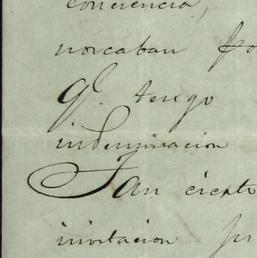 conciencia,
norcaban po
qe. tengo
indeminacion
Tan cierto
invitacion pr